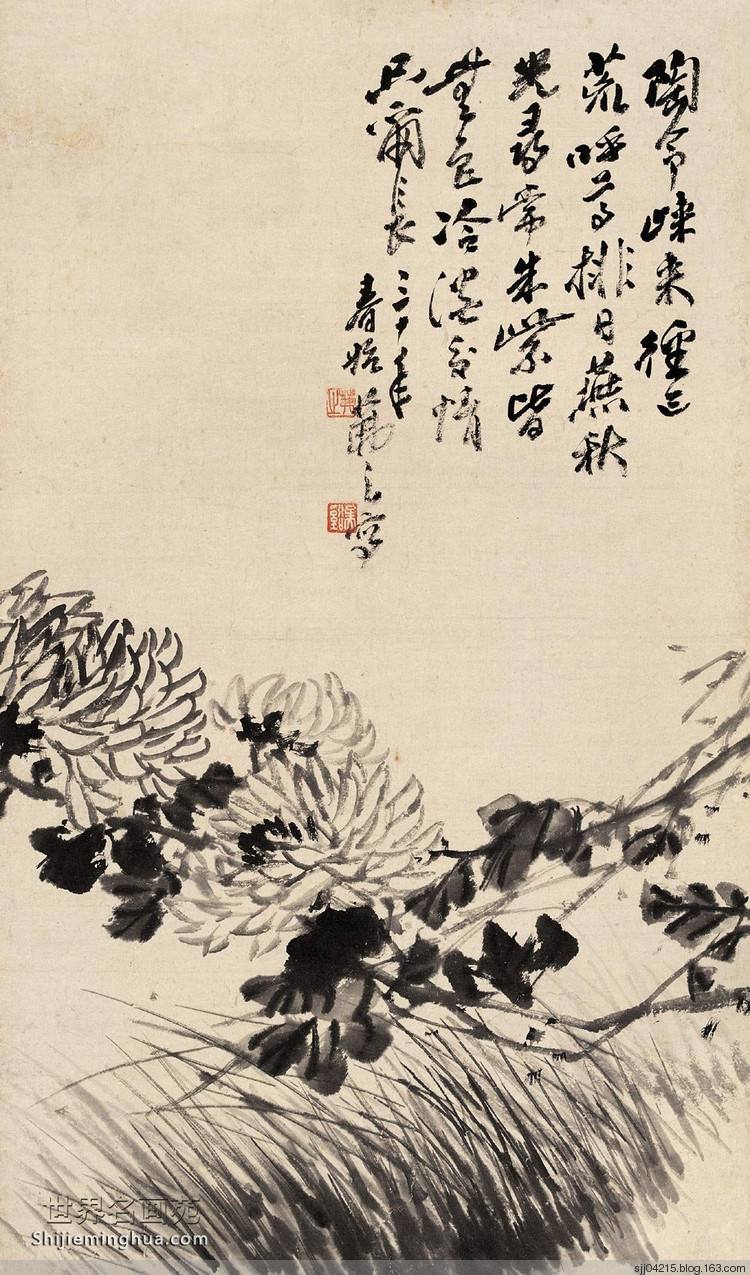 陶令歸来徑三
荒呼尊排日燕秋
光尋常朱紫皆
無色冷淡交情
只爾長 三十年
春始 之寫
世界名画苑
Shijieminghua.com
sjj04215.blog.163.com